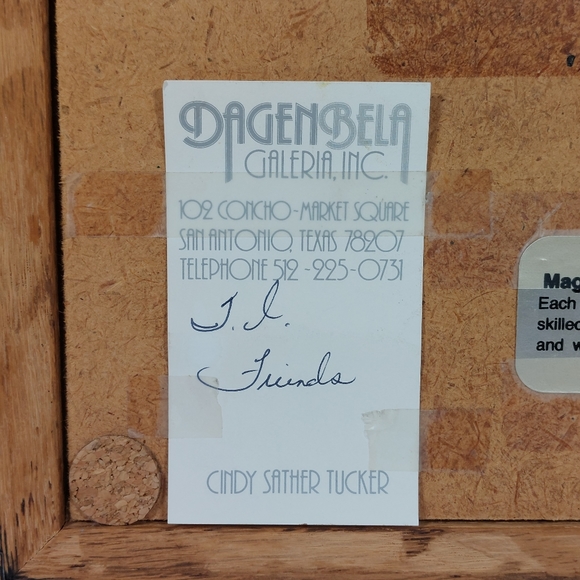 DAGENBELA
GALERIA, INC.
102 CONCHO-MARKET SQUARE
SAN ANTONIO, TEXAS 78207
TELEPHONE 512-225-0731
J. I.
Friends
CINDY SATHER TUCKER
Mag
Each
skilled
and w